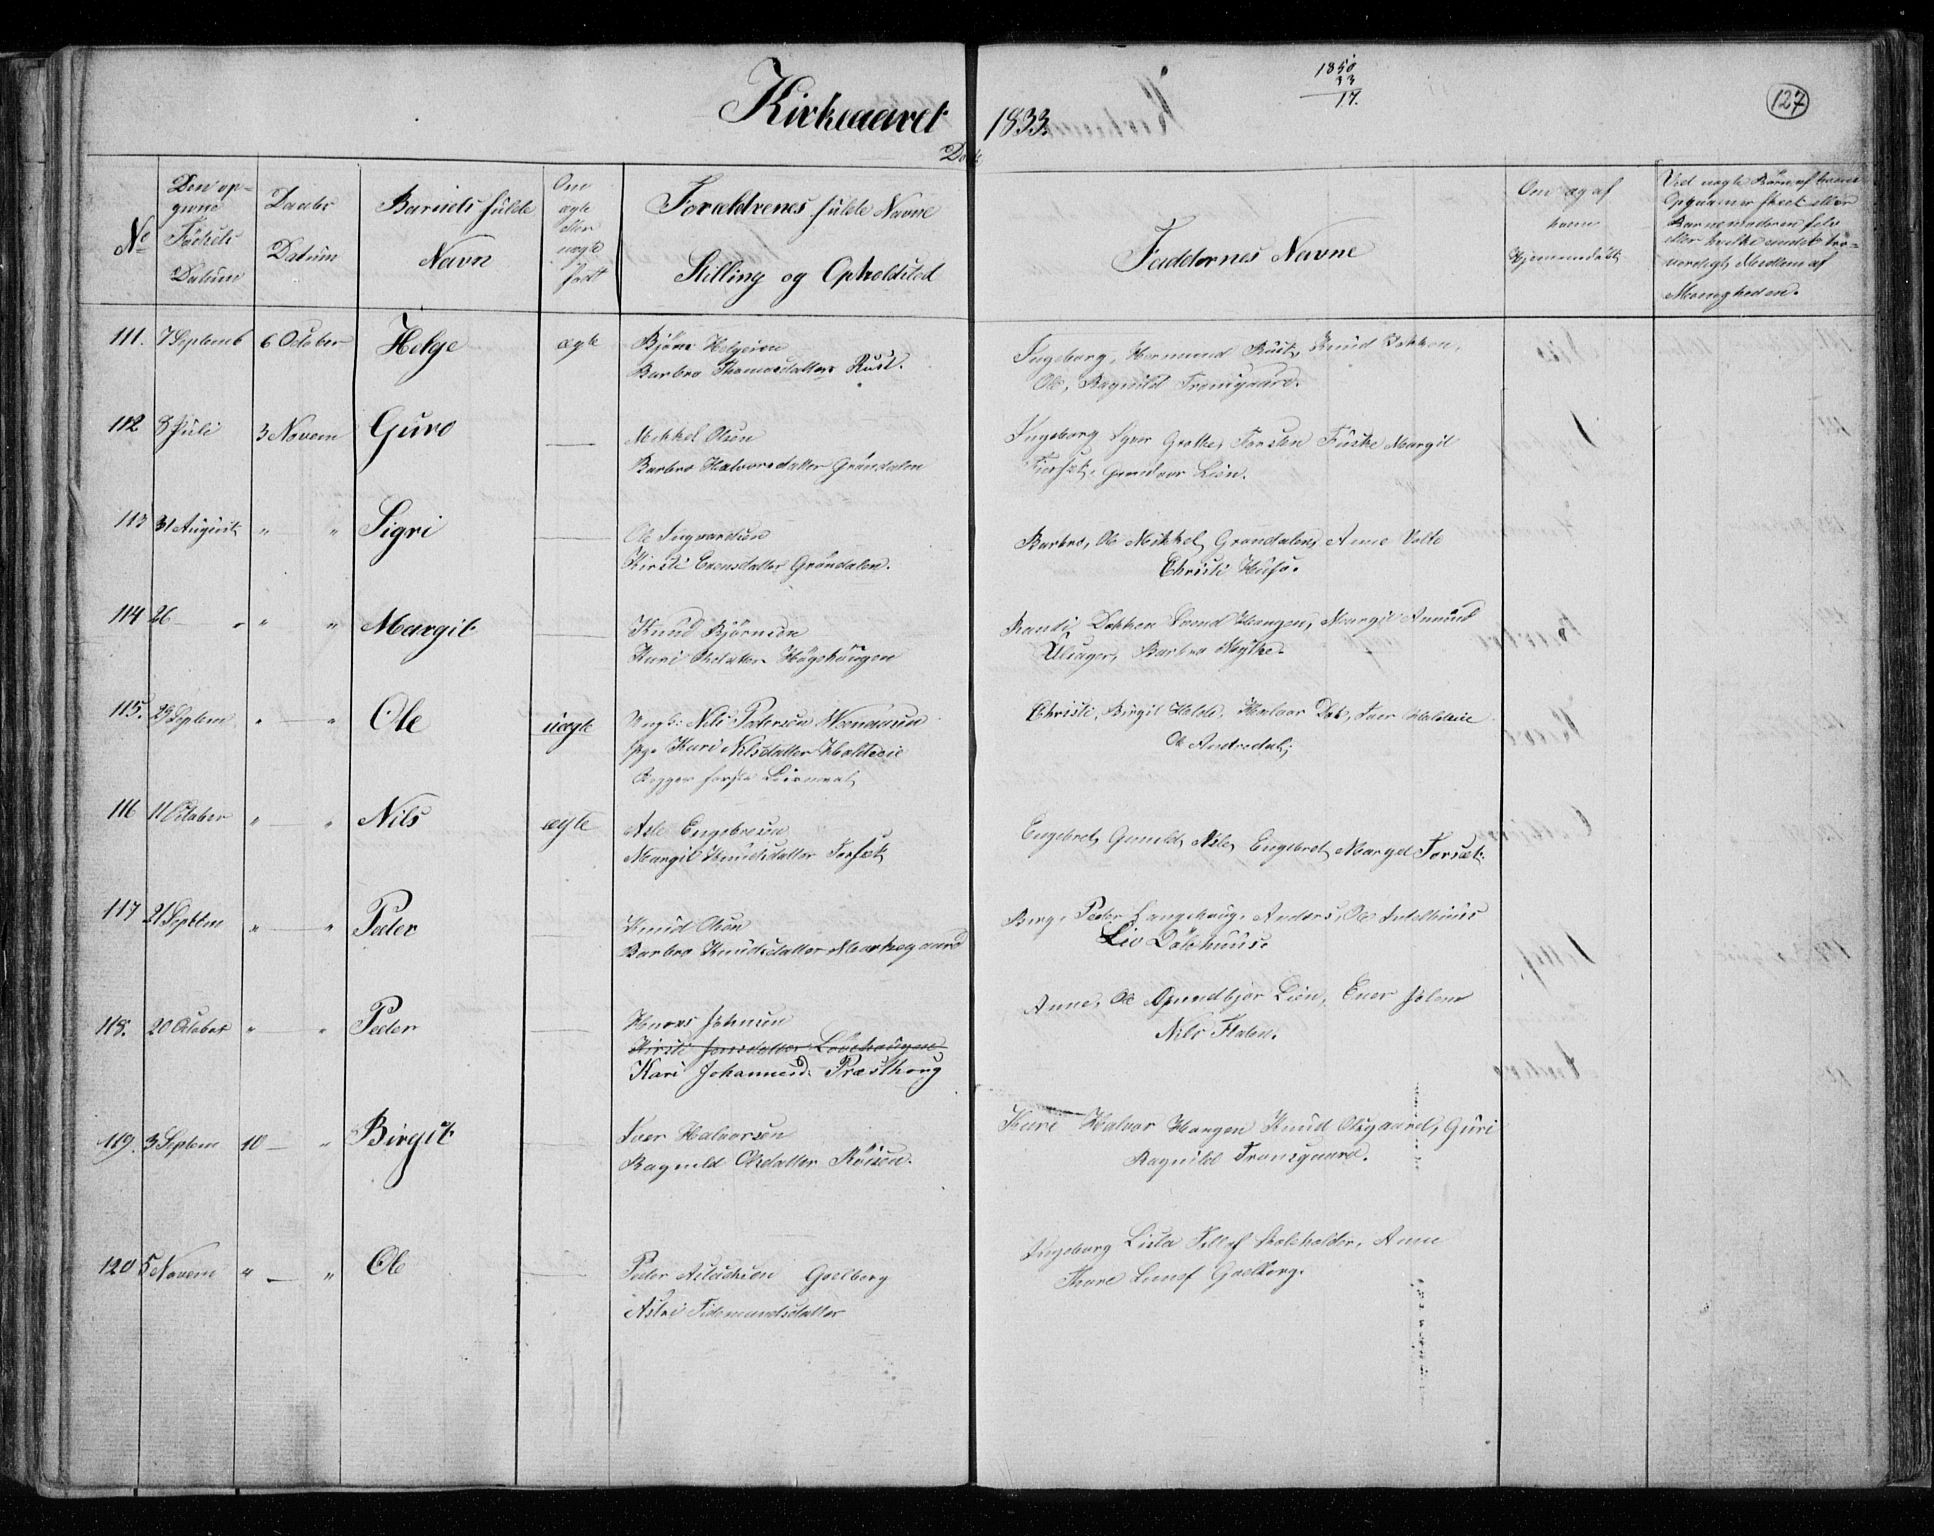 1850
33
17.
127
Kirkeaaret 1833.
Døbte
No
Den op-
givne
Fødsels
Datum
Daabs
Datum
Barnets fulde
Navn
Om
ægte
eller
uægte
født
Forældrenes fulde Navne
Stilling og Opholdsted
Faddernes Navne
Om og af
hvem
Hjemmedøbt
Ved uægte Børn af hvem
Opgaven er skeet eller
Barnemoderen selv
eller hvilke andet tro-
værdigt Medlem af
Menigheden.
111. 7 Septemb 6 October Helge ægte Bjørn Helgesen
Barbro Thomasdatter Rust.
Ingeborg, Hermund Rust, Knud Dokken,
Ole, Ragnild Tronsgaard.
112 8 Juli 3 Novem Guro — Mikkel Olsen
Barbro Halvorsdatter Grøndalen
Ingeborg Iver Grøthe, Torsten Fuske Margit
Torset, Gundvor Lien.
113 31 August " " Sigri — Ole Ingvardsen
Kirsti Evensdatter Grøndalen.
Barbro, Ole Mikkel Grøndalen, Anne Volte
Christi Husø.
114 26 — " " " Margit — Knud Bjørnsen
Kari Olsdatter Høgehaugen
Randi Dokken Svend Haugen, Margit Amund
Ulsager, Barbro Mythe.
115. 29 Septem " — " Ole uægte Ungk: Nils Pedersen
pg. Kari Nilsdatter Holdeie
Begges første Leiermaal
Christi, Birgit Holde, Halvor Iver Holdeie
Ole
116 11 October " — " Nils ægte Asle Engebretsen
Margit Knudsdatter Torset
Engebret, Gunild, Asle, Engebret Margit Torset.
117 21 Septem " — " Peder — Knud Olsen
Barbro Knudsdatter Markegaard
Berge Peder Langehaug, Anders, Ole
Liv
118. 20 October " — " Peder — Johnsen
Kirsti Jonsdatter Løvehaugen
Kari Johannesd. Præsthoug
Anne, Ole Gundbjør Lien, Ener
Nils Flaten.
119. 3 Septem 10 — " Birgit — Iver Halvorsen
Ragnild Olsdatter Røisen.
Kari Halvor Haugen Knud Olsgaard, Guri
Ragnild Tronsgaard.
120 5 Novem " — " Ole — Peder Aslachsen Goelberg
Astri Tidemandsdatter
Ingeborg Lisla Tellef Anne
Goelberg.